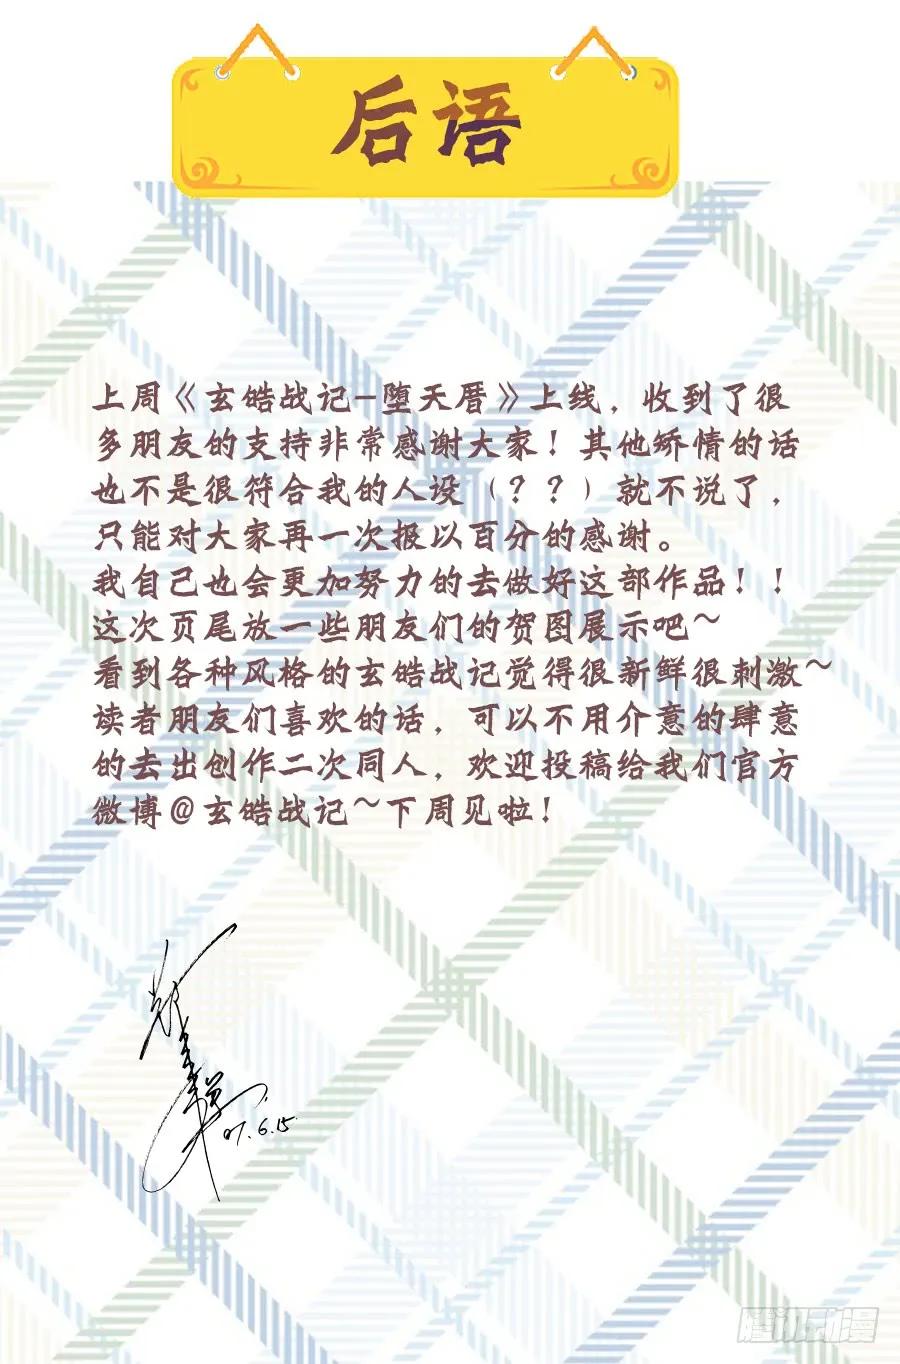 后语
上周《玄皓战记-堕天厝》上线，收到了很
多朋友的支持非常感谢大家！其他矫情的话
也不是很符合我的人设（？？）就不说了，
只能对大家再一次报以百分的感谢。
我自己也会更加努力的去做好这部作品！！
这次页尾放一些朋友们的贺图展示吧~
看到各种风格的玄皓战记觉得很新鲜很刺激~
读者朋友们喜欢的话，可以不用介意的肆意
的去出创作二次同人，欢迎投稿给我们官方
微博@玄皓战记~下周见啦！
07.6.15.
腾讯动漫